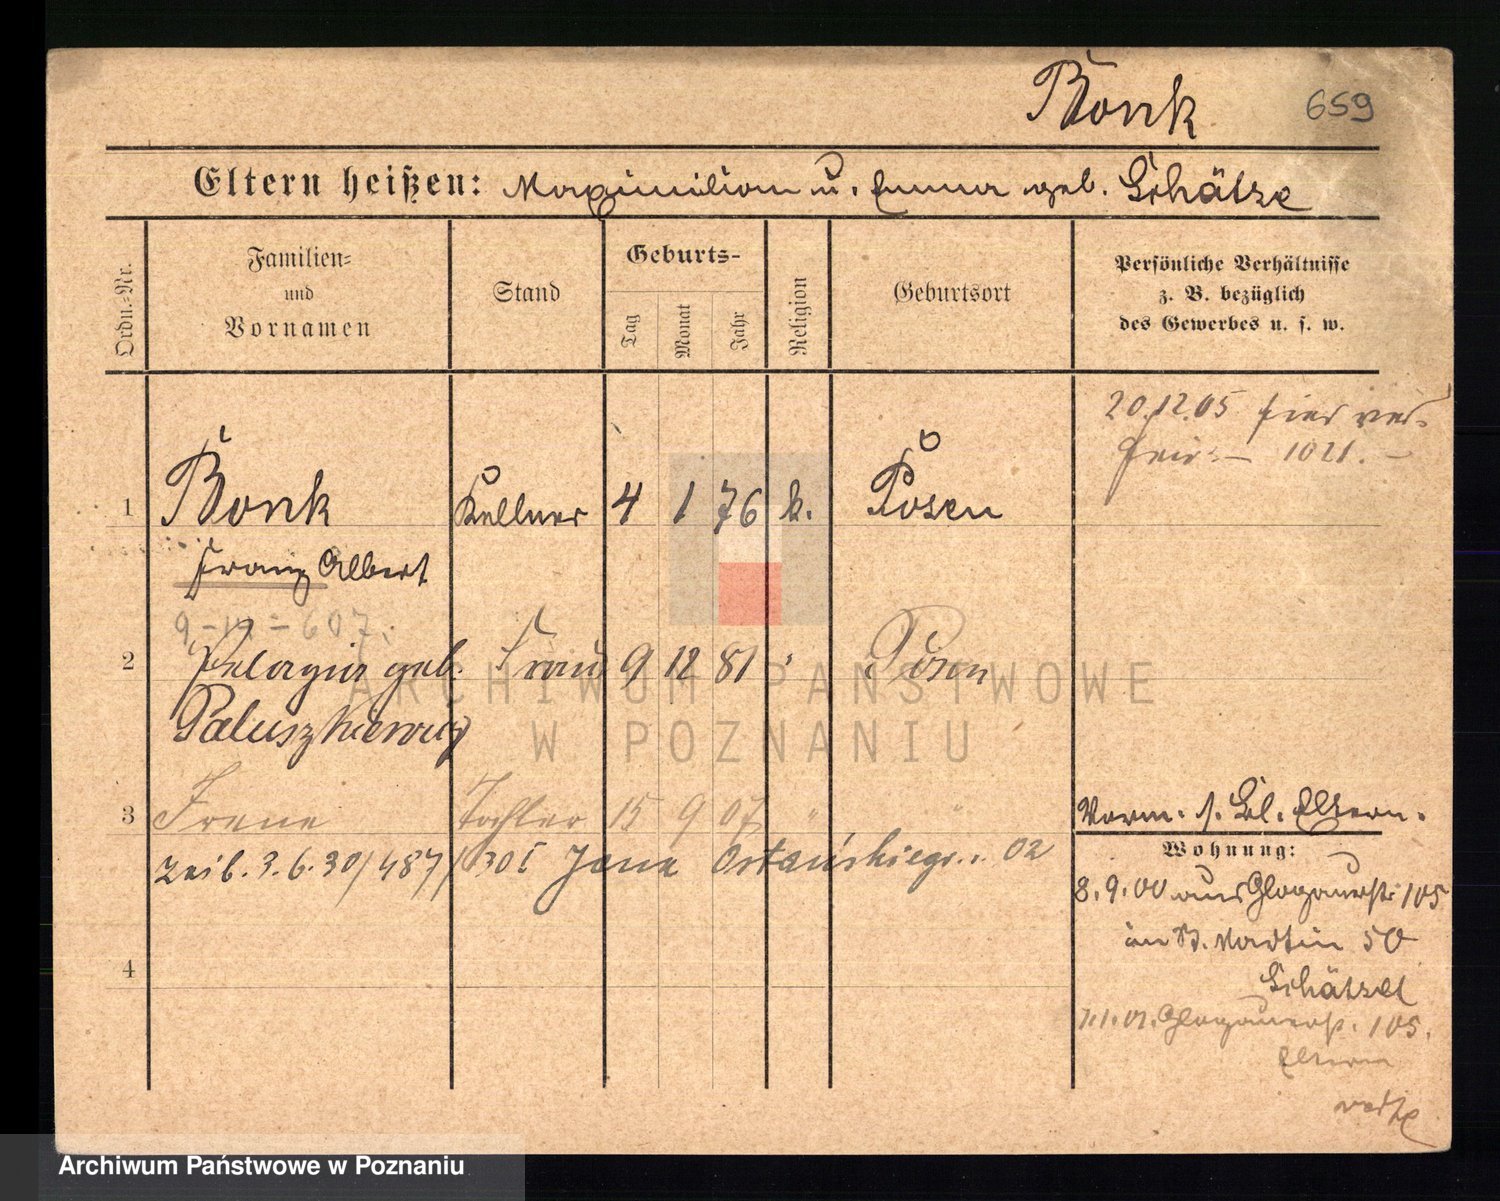 Bonk 659
Eltern heißen: Maximilian u. Emma geb. Schätze
Ordn.-Nr.
Familien-
und
Vornamen
Stand
Geburts-
Tag
Monat
Jahr
Religion
Geburtsort
Persönliche Verhältnisse
z. B. bezüglich
des Gewerbes u. s. w.
20.12.05 hier ver-
heir. — 1021. —
1 Bonk Kellner 4 1 76 k. Posen
Franz Albert
607.
2 Pelagia geb. Frau 9 12 81 " Posen
Paluszkiewicz
3 Irene Tochter 15 9 07 " "
3.6.30/487/ Jana 02
4
Vorm. s. Bl. Eltern.
Wohnung:
8.9.00 aus Glogauerstr 105
in St. Martin 50
Schätzel
Glogauerstr. 105.
Eltern
ARCHIWUM PAŃSTWOWE
W POZNANIU
Archiwum Państwowe w Poznaniu